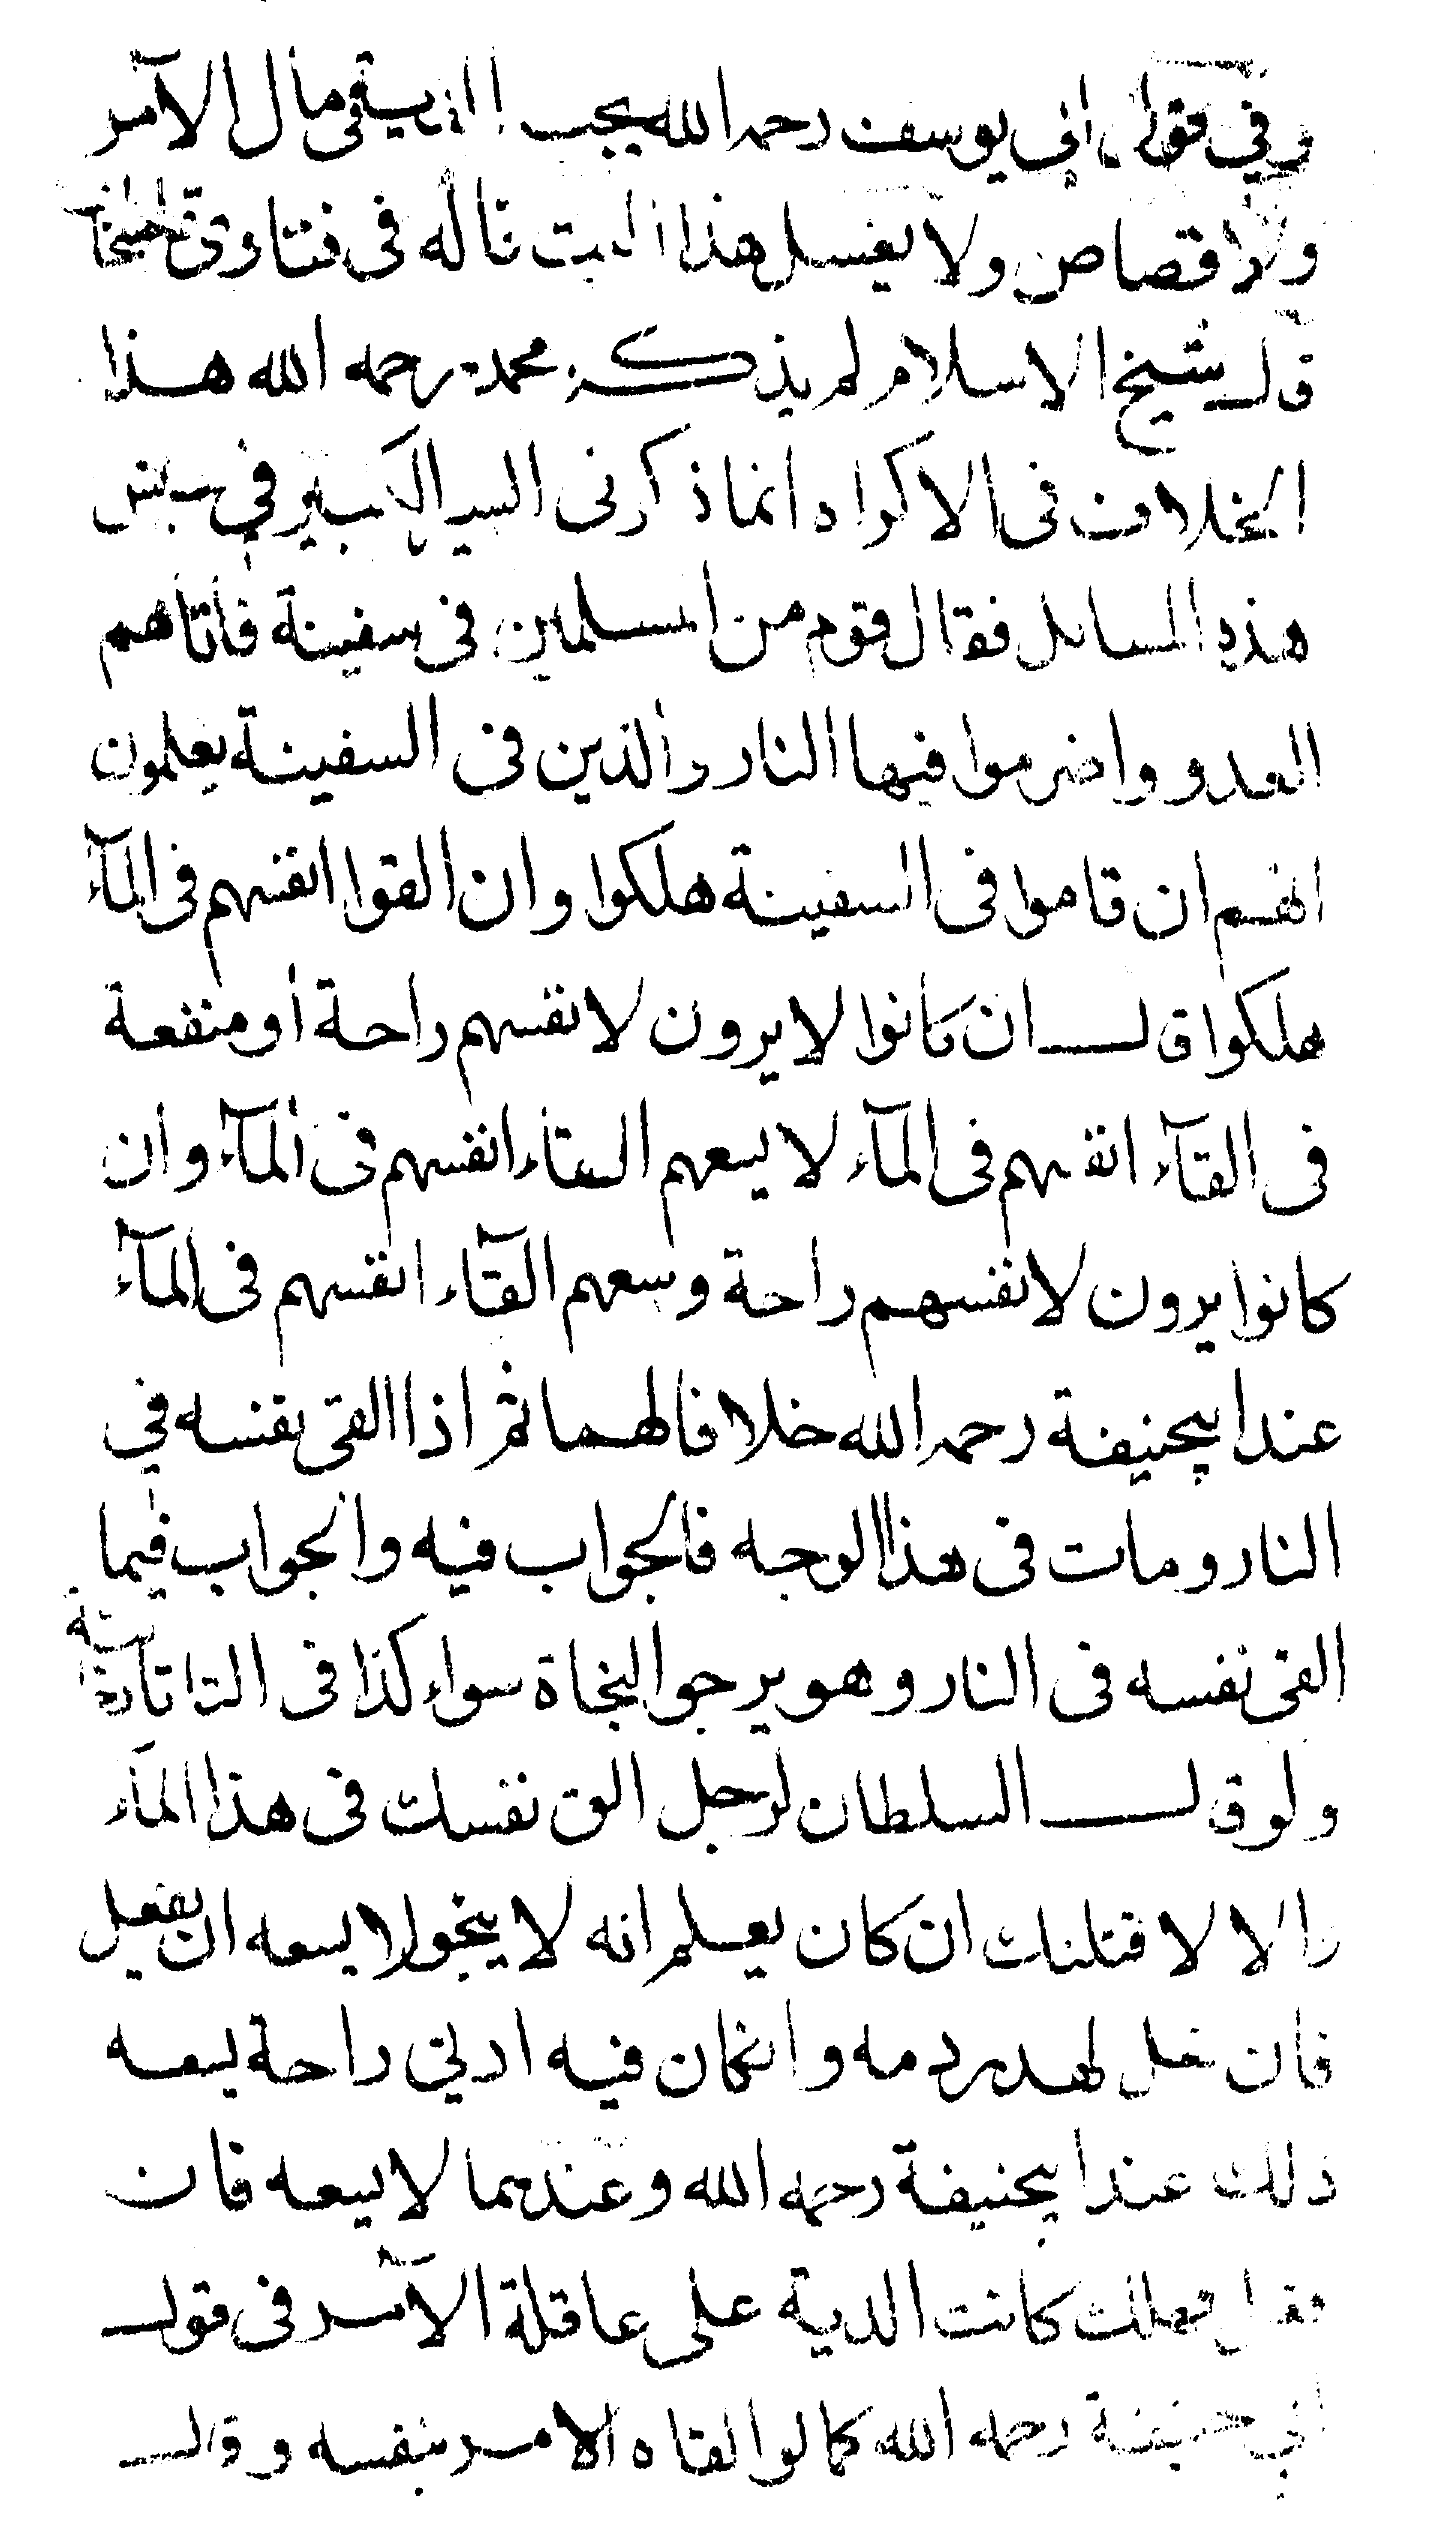 وفي قول ابي يوسف رحمه الله يجب الدية في مال الآمر
ولا قصاص ولا يغسل هذا الميت ناله في فتاوى قاضيخا
قال شيخ الاسلام لم يذكر محمد رحمه الله هذا
الخلاف في الاكراه انما ذكر في السير الكبير في جنس
هذه المسائل فقال قوم من المسلمين في سفينة فاتاهم
العدو واضرموا فيها النار والذين في السفينة يعلمون
انهم ان قاموا في السفينة هلكوا وان القوا انفسهم في المآء
هلكوا قال ان كانوا لا يرون لانفسهم راحة او منفعة
في القآء انفسهم في المآء لا يسعهم القاء انفسهم في المآء وان
كانوا يرون لانفسهم راحة وسعهم القآء انفسهم في المآء
عند ابيحنيفة رحمه الله خلافا لهما ثم اذا القى نفسه في
النار ومات في هذا الوجه فالجواب فيه والجواب فيما
القى نفسه في النار وهو يرجوا النجاة سواء كذا في التاتارخانية
ولو قال السلطان لرجل الق نفسك في هذا المآء
والا لاقتلنك ان كان يعلم انه لا ينجو لا يسعه ان يفعل
فان فعل لهدر دمه وانكان فيه ادنى راحة يسعه
ذلك عند ابيحنيفة رحمه الله وعندهما لا يسعه فان
فعل فهلك كانت الدية على عاقلة الآمر في قول
ابي حنيفة رحمه الله كما لو القاه الآمر بنفسه وقال